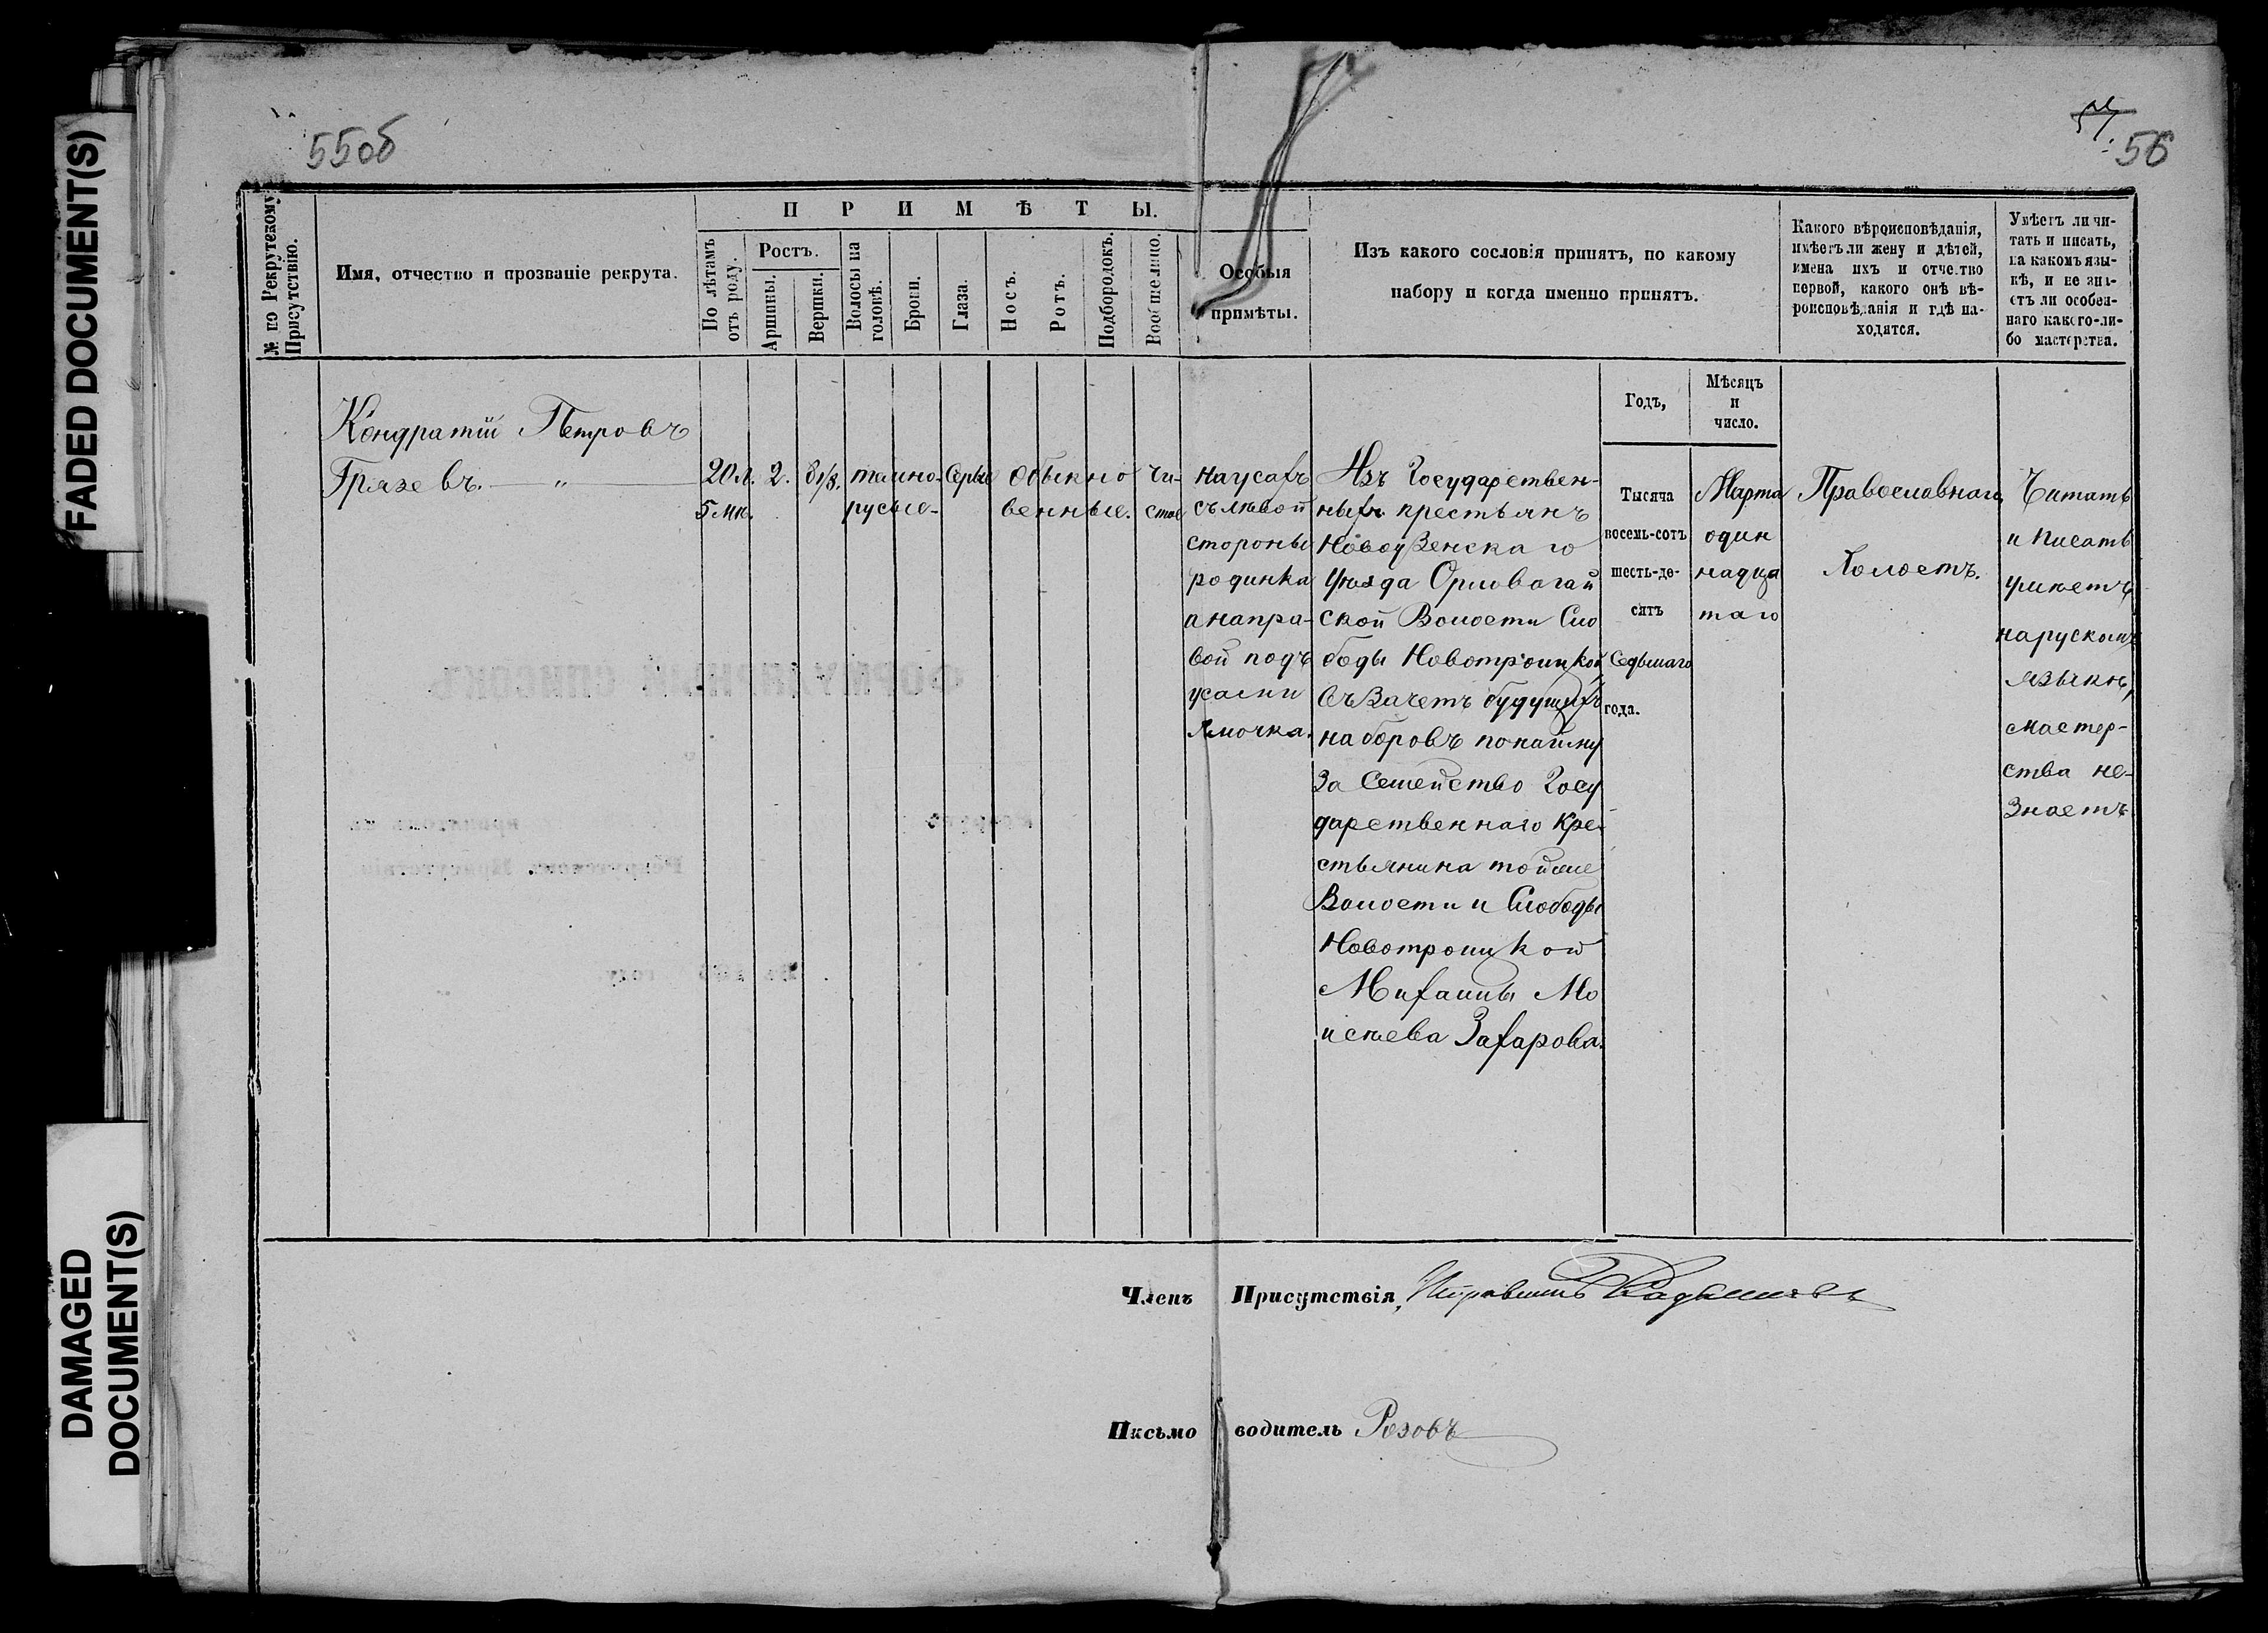 FADED DOCUMENT(S)
DAMAGED
DOCUMENT(S)
55об
57
56
№ по Рекрутскому
Присутствію.
Имя, отчество и прозваніе рекрута.
П Р И М Ѣ Т Ы.
По лѣтамъ
отъ роду.
Ростъ.
Аршины.
Вершки.
Волосы на
головѣ.
Брови.
Глаза.
Носъ.
Ротъ.
Подбородокъ.
Вообще лицо.
Особыя
примѣты.
Изъ какого сословія принятъ, по какому
набору и когда именно принятъ.
Какого вѣроисповѣданія,
имѣетъ ли жену и дѣтей,
имена ихъ и отчество
первой, какого онѣ вѣ-
роисповѣданія и гдѣ на-
ходятся.
Умѣетъ ли чи-
тать и писать,
на какомъ язы-
кѣ, и не зна-
етъ ли особен-
наго какого-ли-
бо мастерства.
Годъ,
Мѣсяцъ
и
число.
Кондратій Петровъ
Грязевъ. — „ —
20 л.
5 мц.
2.
6 1/8.
темно-
русые-
Серые
Обыкно
венные.
чи-
стое
на усахъ
съ лѣвой
стороны
родинка
а на пра-
вой подъ
усами
ямочка.
Изъ Государствен-
ныхъ крестьянъ
Новоузенскаго
уѣзда Орловогай
ской Волости Сло
боды Новотроицкой
въ зачетъ будущихъ
наборовъ по найму
за Семейство Госу
дарственнаго Кре-
стьянина той же
Волости и Слободы
Новотроицкой
Михаилы Мо
исѣева Захарова.
Тысяча
восемь-сотъ
шесть-де-
сятъ
Седьмаго
года.
Марта
один
надца
таго
Православнаго
Холостъ.
Читать
и писать
умѣетъ
на рускомъ
языкѣ,
мастер-
ства не-
знаетъ
ФОРМУЛЯРНЫЙ СПИСОКЪ
Членъ Присутствія,
Письмоводитель Розовъ